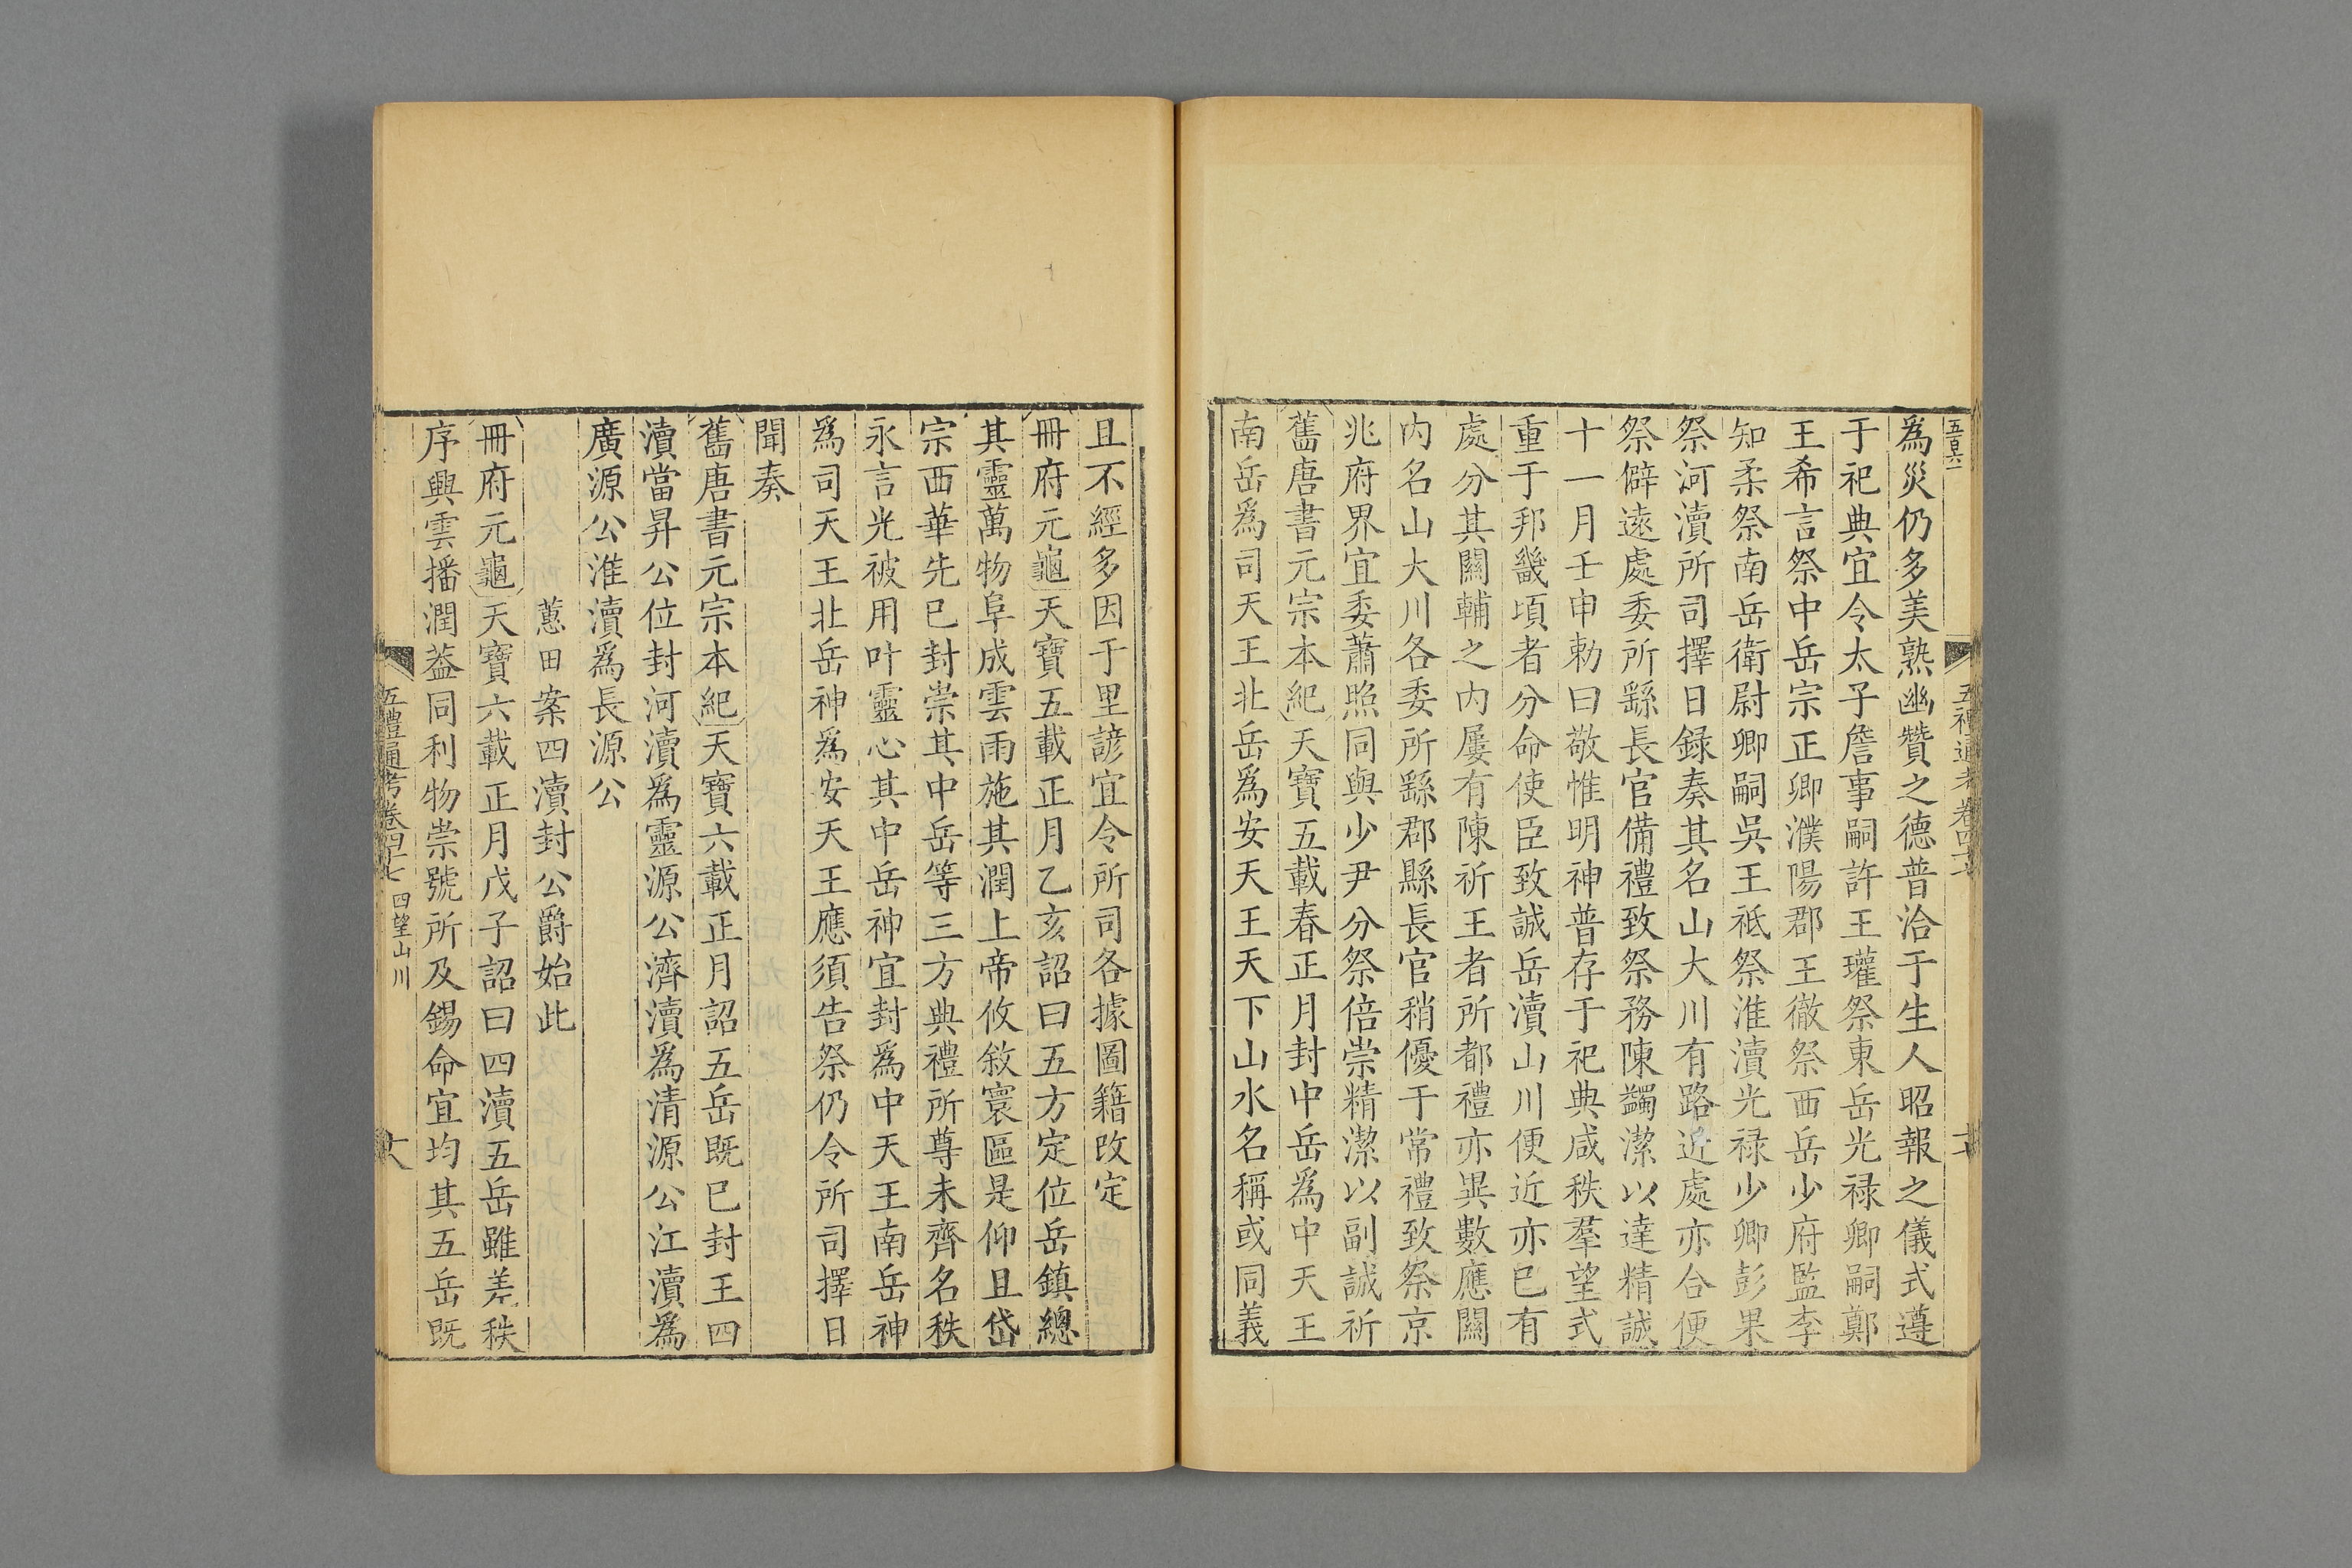 五禮通考卷四十七
爲災仍多美熟幽贊之德普洽于生人昭報之儀式遵
于祀典宜令太子詹事嗣許王瓘祭東岳光祿卿嗣鄭
王希言祭中岳宗正卿濮陽郡王徹祭西岳少府監李
知柔祭南岳衛尉卿嗣吳王祗祭淮瀆光祿少卿彭果
祭河瀆所司擇日錄奏其名山大川有路近處亦合便
祭僻遠處委所繇長官備禮致祭務陳蠲潔以達精誠
十一月壬申勑曰敬惟明神普存于祀典咸秩羣望式
重于邦畿頃者分命使臣致誠岳瀆山川便近亦已有
處分其關輔之內屢有陳祈王者所都禮亦異數應關
內名山大川各委所繇郡縣長官稍優于常禮致祭京
兆府界宜委蕭煦同與少尹分祭倍崇精潔以副誠祈
舊唐書元宗本紀天寶五載春正月封中岳爲中天王
南岳爲司天王北岳爲安天王天下山水名稱或同義
且不經多因于里諺宜令所司各據圖籍改定
冊府元龜天寶五載正月乙亥詔曰五方定位岳鎮總
其靈萬物阜成雲雨施其潤上帝攸敘寰區是仰且岱
宗西華先已封崇其中岳等三方典禮所尊未齊名秩
永言光被用叶靈心其中岳神宜封爲中天王南岳神
爲司天王北岳神爲安天王應須告祭仍令所司擇日
聞奏
舊唐書元宗本紀天寶六載正月詔五岳既已封王四
瀆當昇公位封河瀆爲靈源公濟瀆爲清源公江瀆爲
廣源公淮瀆爲長源公
蕙田案四瀆封公爵始此
冊府元龜天寶六載正月戊子詔曰四瀆五岳雖差秩
序興雲播潤蓋同利物崇號所及錫命宜均其五岳既
五禮通考卷四十七 四望山川